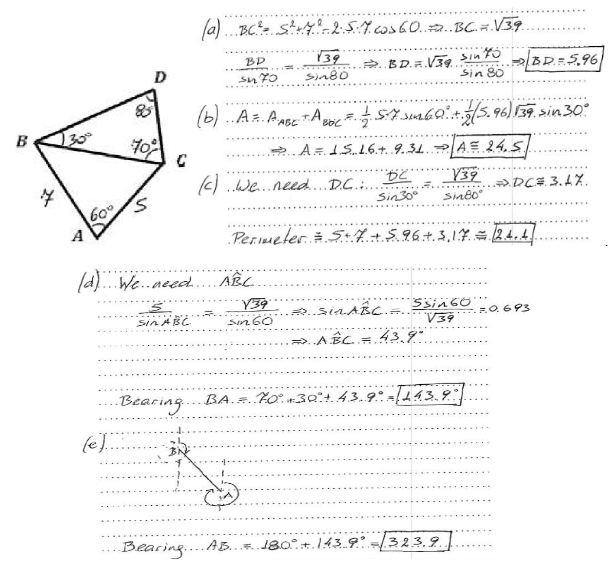 (a) BC² = 5² + 7² - 2·5·7 cos60 ⇒ BC = √39
BD/sin70 = √39/sin80 ⇒ BD = √39 sin70/sin80 ⇒ BD = 5.96
D
80°
B
30°
70°
C
7
60°
5
A
(b) A = A_ABC + A_BDC = 1/2 5·7 sin60° + 1/2 (5.96)√39 sin30°
⇒ A = 15.16 + 9.31 ⇒ A ≅ 24.5
(c) We need DC : DC/sin30° = √39/sin80° ⇒ DC ≅ 3.17
Perimeter ≅ 5 + 7 + 5.96 + 3.17 ≅ 21.1
(d) We need AB̂C
5/sinABC = √39/sin60 ⇒ sinAB̂C = 5sin60/√39 = 0.693
⇒ AB̂C = 43.9°
Bearing BA = 70° + 30° + 43.9° = 143.9°
(e)
B
A
Bearing AB = 180° + 143.9° = 323.9